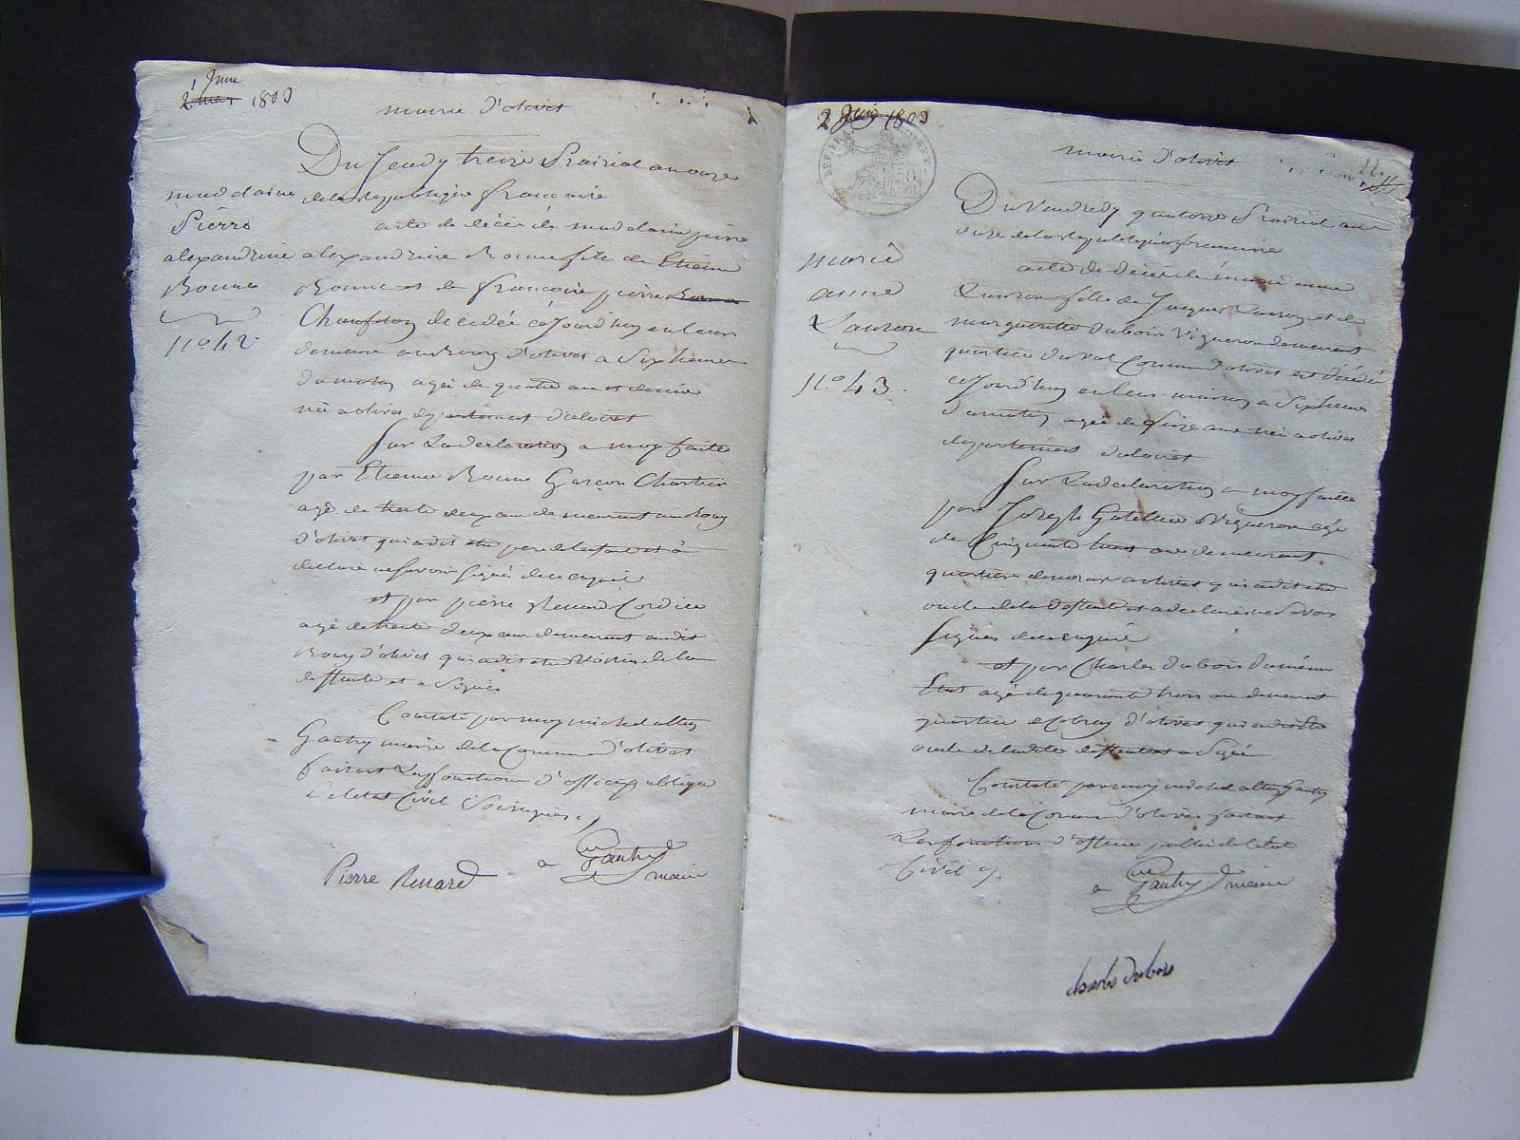 1 Juin
2 mai 1803
mairie d'olivet
Du Jeudy treize Prairial an onze
de la Republique francaise
madelaine
Pierre
alexandrine
Bonne
n.o 42
acte de décès de madelaine pierre
alexandrine Bonne fille de Etienne
Bonne et de francoise pierre
Chaufton decedée cejourd'huy en leur
demeure au Bourg d'olivet a Six heures
du matin agée de quatre ans et demie
née a olivet departement du loiret
Sur La declaration a moy faite
par Etienne Bonne Garçon Chartier
agé de trente deux ans demeurant au bourg
d'olivet qui a dit etre pere de la
declaré ne savoir signer de ce enquis
et par pierre Renard Cordier
agé de trente deux ans demeurant audit
Bourg d'olivet qui a dit etre voisin de la
deffunte et a Signé
Constaté par moy michel
Gautry maire de la Commune d'olivet
faisant Les fonctions d'officier publique
de l'etat Civil Soussigné
Pierre Renard
Gautry
maire
2 Juin 1803
mairie d'olivet
Du Vendredy quatorze Prairial an
onze de la Republique francaise
marie
anne
Lauron
n.o 43
acte de décès de marie anne
Lauron fille de Jacques Lauron et de
margueritte dubois Vigneron demeurant
quartier du val Commune d'olivet est décédé
cejourd'huy en leur maison a Six heures
du matin agée de ans née a olivet
departement du loiret
Sur La declaration a moy faitte
par Joseph Vigneron agé
de Cinquante huit ans demeurant
quartier a olivet qui a dit etre
oncle de la deffunte et a declaré ne Savoir
Signer de ce enquis
et par Charles dubois du même
Etat agé de quarante trois ans demeurant
quartier d'olivet qui a dit etre
oncle de la ditte deffunte et a Signé
Constaté par moy michel Gautry
maire de la Commune d'olivet faisant
Les fonctions d'officier public de l'etat
Civil
Gautry maire
charles dubois